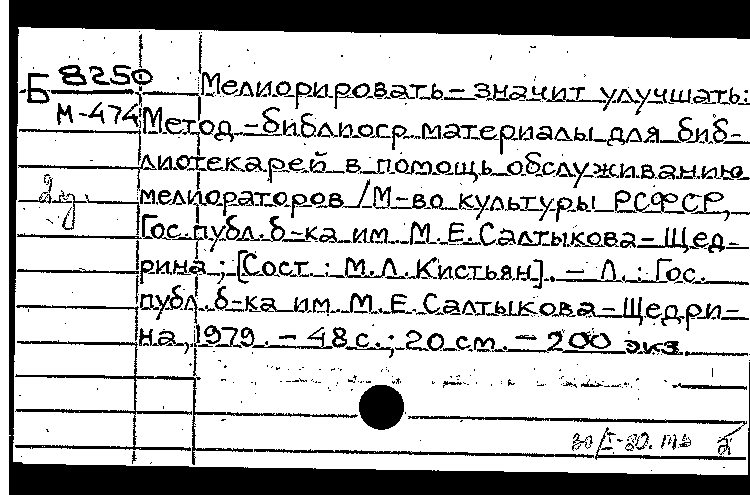 Б 8250
М-474
Мелиорировать – значит улучшать:
Метод.-библиогр. материалы для биб-
лиотекарей в помощь обслуживанию
мелиораторов / М-во культуры РСФСР,
Гос. публ. б-ка им. М.Е. Салтыкова-Щед-
рина; [Сост.: М.Л. Кистьян]. – Л.: Гос.
публ. б-ка им. М.Е. Салтыкова-Щедри-
на, 1979. – 48 с.; 20 см. – 200 экз.